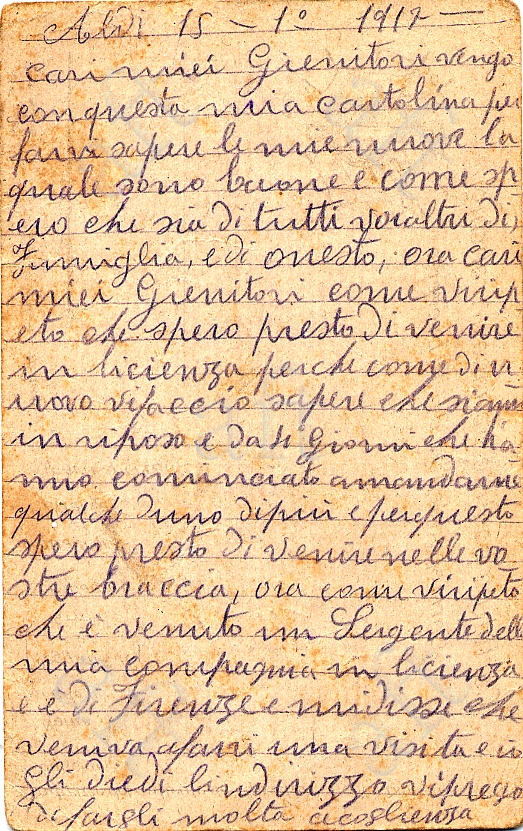 Al dì 15 - 1° 1917
cari miei Gienitori vengo
con questa mia cartolina per
farvi sapere le mie nuove la
quale sono buone e come sp
ero che sia di tutti voialtri di
Famiglia, e di onesto, ora cari
miei Gienitori come virip
eto che spero presto di venire
in licienza perche come di n
uovo vifaccio sapere che siamo
in riposo e da 4 Giorni che ha
nno cominciato amandarne
qualche duno dipiù e perquesto
spero presto di venire nelle vo
stre braccia, ora come viripeto
che è venuto un Sergente della
mia compagnia in licienza
e è di Firenze e midisse che
veniva afarvi una visita e io
gli diedi lindirizzo viprego
difargli molta acoglienza